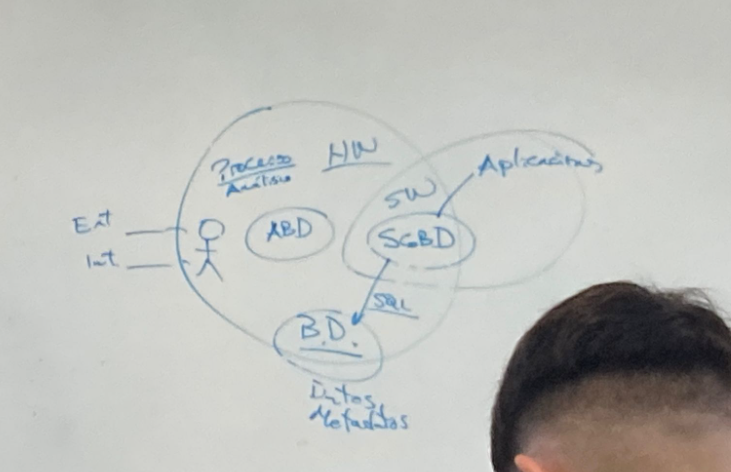 Proceso
Análisis
HW
Aplicaciones
SW
Ext
Int.
ABD
SGBD
SQL
B.D.
Datos,
Metadatos